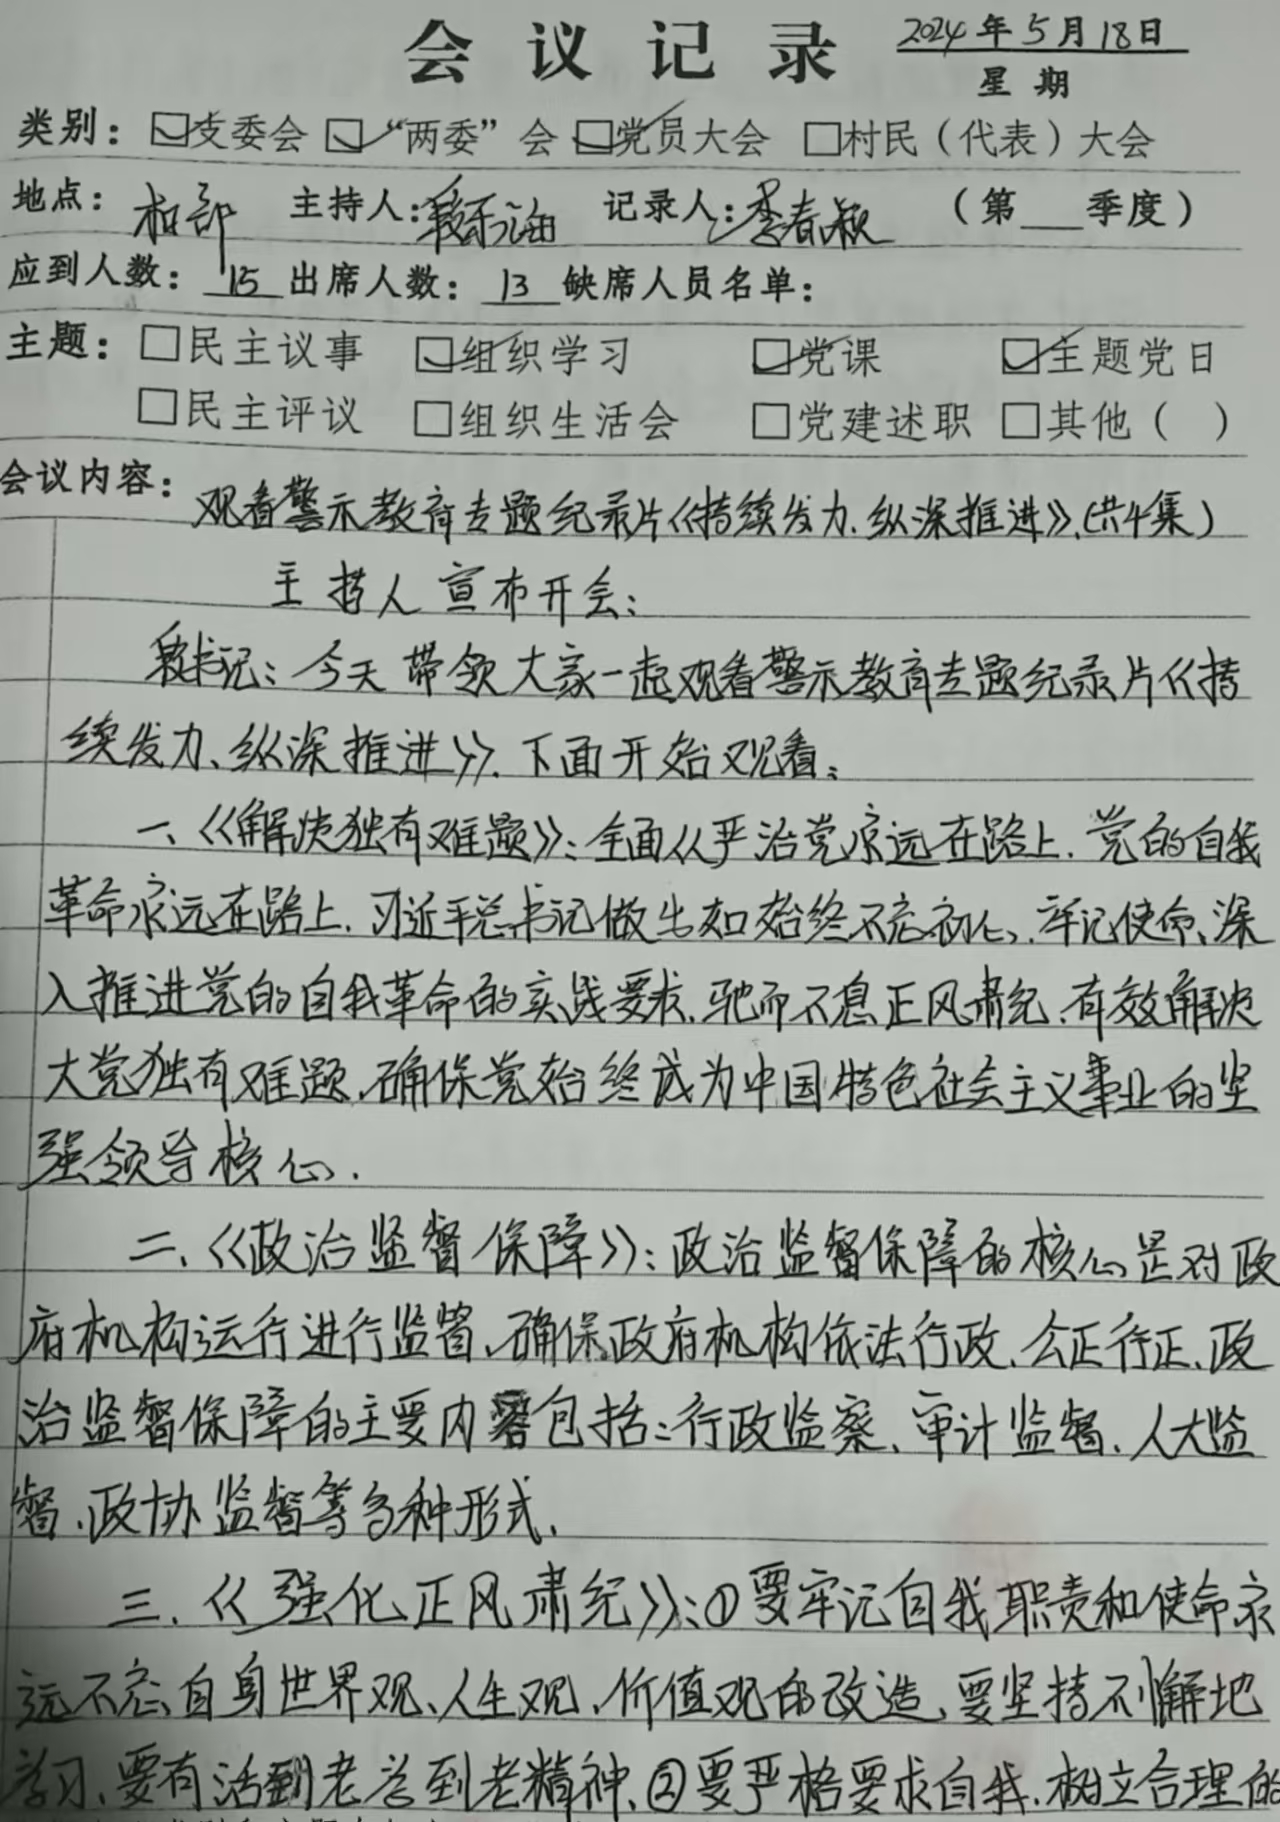 会议记录 2024年5月18日
星期
类别：☑支委会 ☑“两委”会 ☑党员大会 □村民（代表）大会
地点：村部 主持人：段乐海 记录人：李春颖 （第___季度）
应到人数：15 出席人数：13 缺席人员名单：
主题：□民主议事 ☑组织学习 ☑党课 ☑主题党日
□民主评议 □组织生活会 □党建述职 □其他（ ）
会议内容：观看警示教育专题纪录片《持续发力、纵深推进》（共4集）
主持人宣布开会：
段书记：今天带领大家一起观看警示教育专题纪录片《持
续发力、纵深推进》，下面开始观看：
一、《解决独有难题》：全面从严治党永远在路上，党的自我
革命永远在路上，习近平总书记做出如始终不忘初心、牢记使命、深
入推进党的自我革命的实践要求，驰而不息正风肃纪，有效解决
大党独有难题，确保党始终成为中国特色社会主义事业的坚
强领导核心。
二、《政治监督保障》：政治监督保障的核心是对政
府机构运行进行监督，确保政府机构依法行政、公正行正，政
治监督保障的主要内容包括：行政监察、审计监督、人大监
督、政协监督等多种形式。
三、《强化正风肃纪》：①要牢记自我职责和使命永
远不忘，自身世界观、人生观、价值观的改造，要坚持不懈地
学习，要有活到老学到老精神，②要严格要求自我，树立合理的